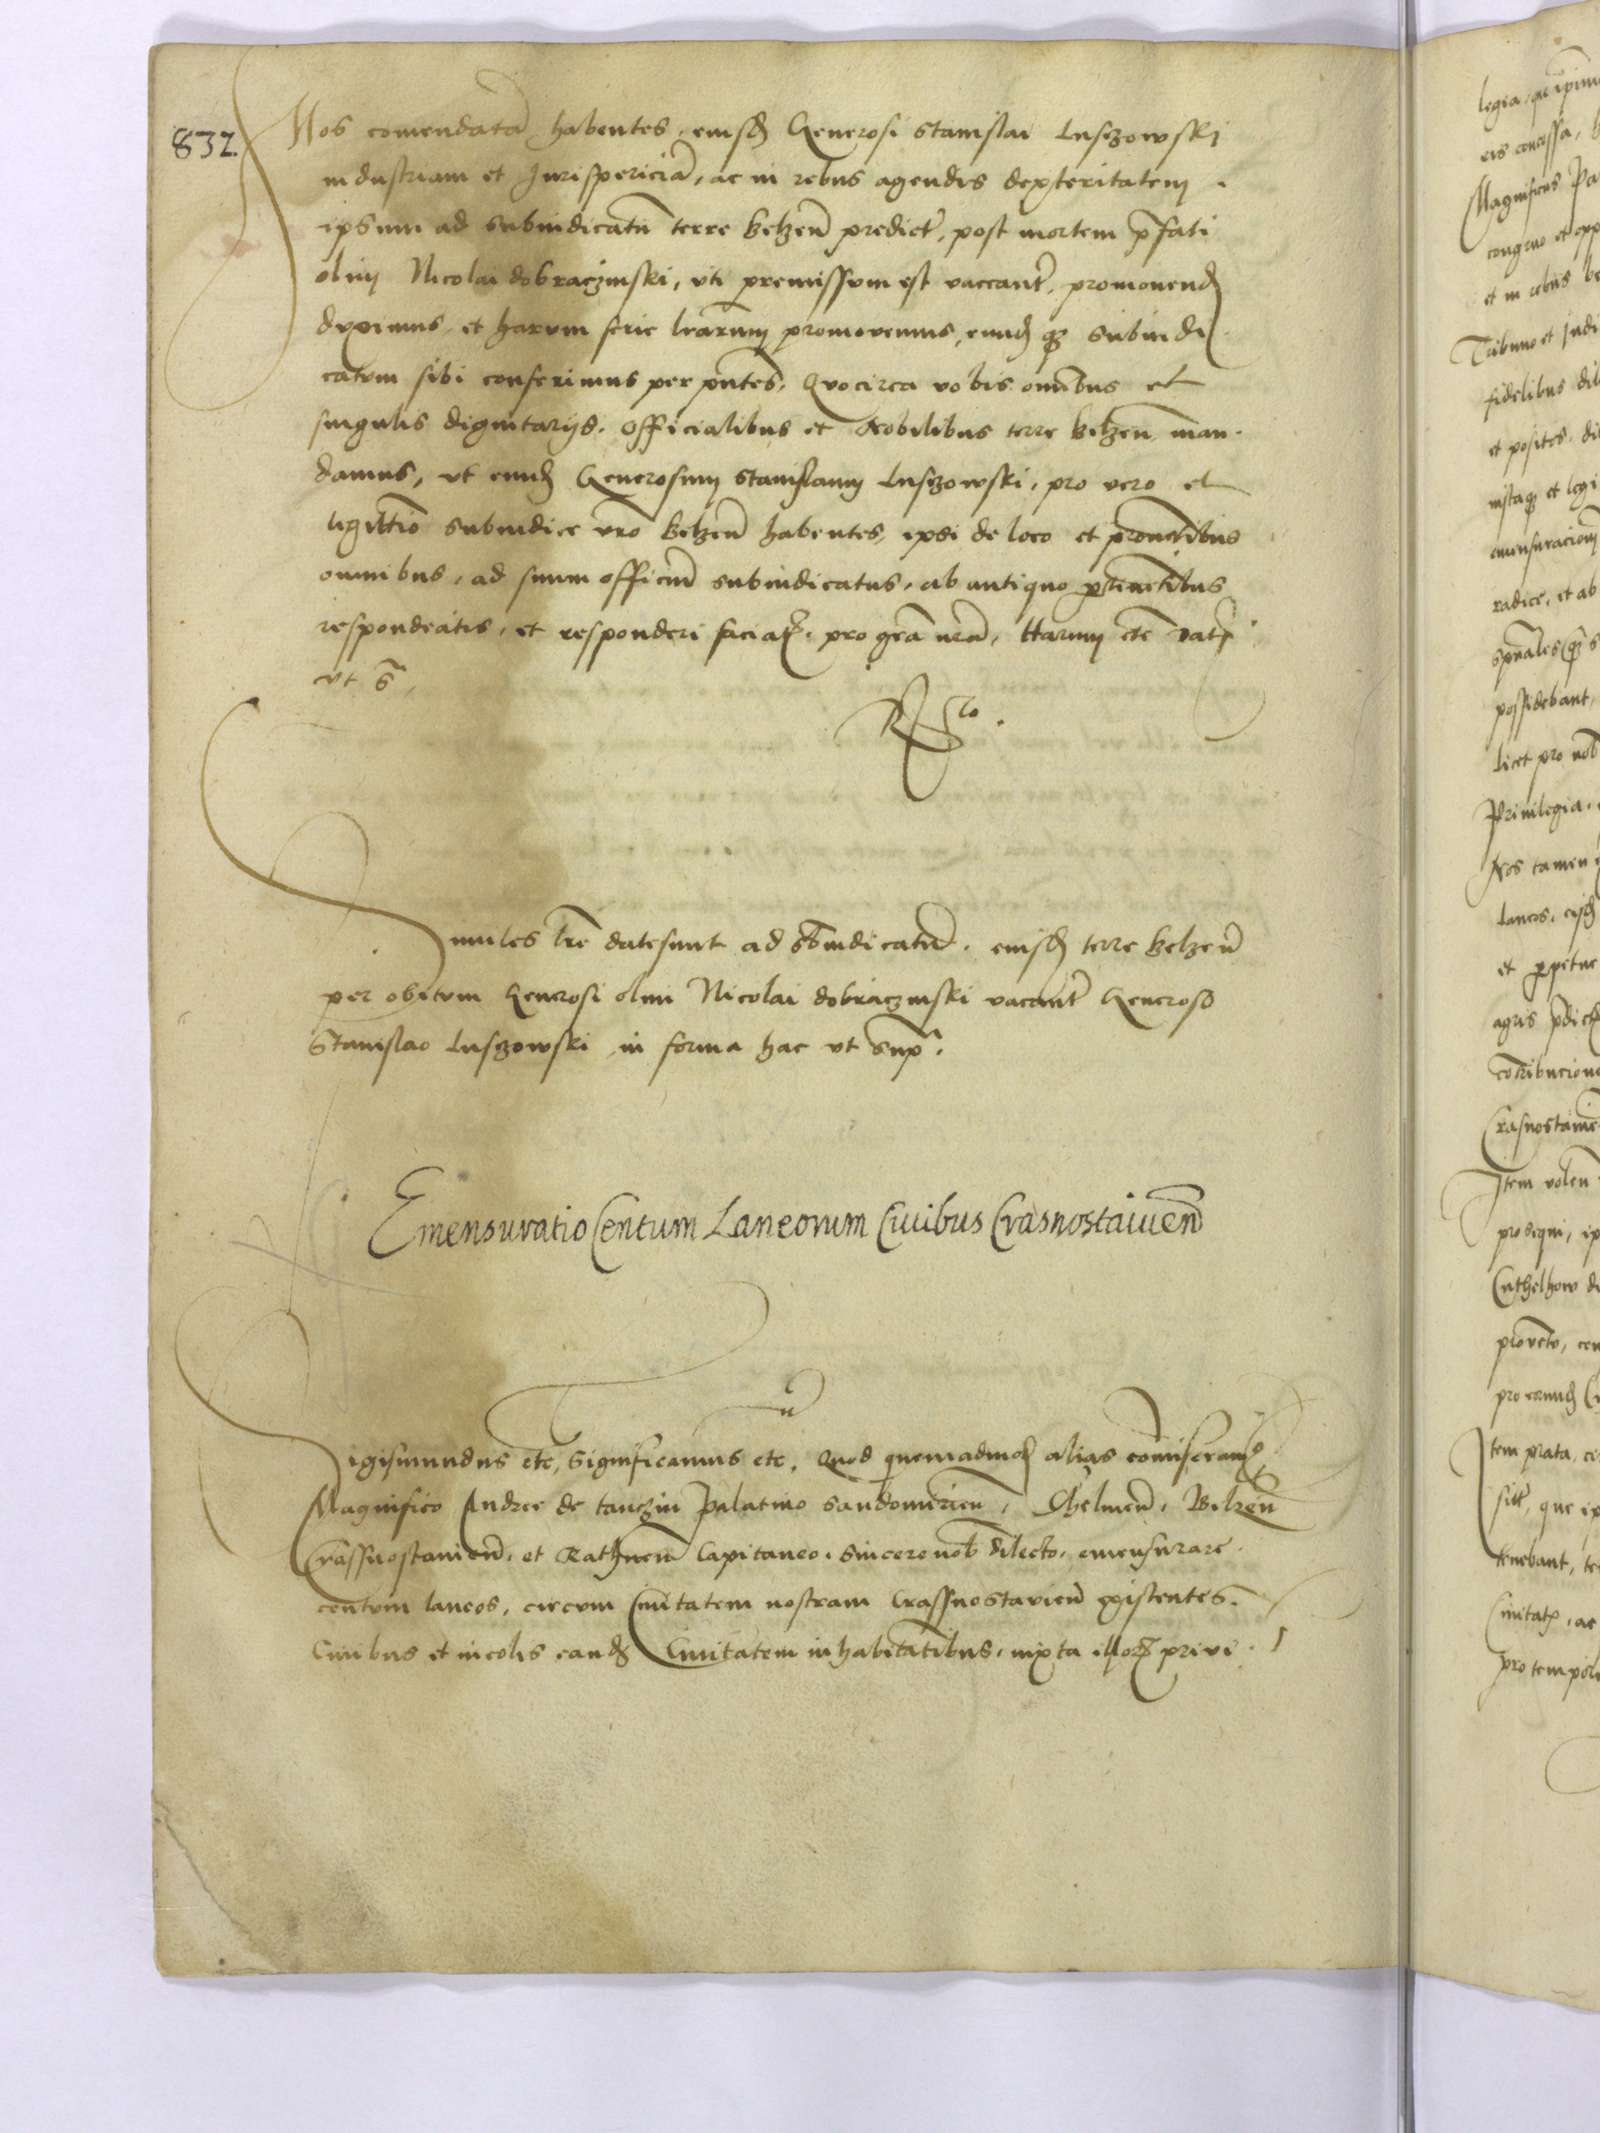 832.
Nos comendatã habentes, eiusđ Generosi Stanislai Lusczowski
industriam et Jurispericiã, ac in rebus agendis dexteritatem.
ipsum ad subiudicatũ terre belzeñ predict, post mortem p̃fati
olim Nicolai dobraczinski, uti premissum est vaccant, promouend
duximus, et harum serie l̃rarum promovemus, eundq; subiudi
catum sibi conferimus per p̃ntes, Quocirca vobis omibus et
singulis dignitarijs. Officialibus et Nobilibus terre belzeñ man.
damus, ut eund Generosum Stanislaum Lusczowski, pro vero et
ligittĩo subiudice vr̃o belzeñ habentes, ipsi de loco et proventibus
omnibus, ad suum officiũ subiudicatus, ab antiquo ptinentibus
respondeatis, et responderi faciat, pro gr̃a nr̃a, Harum etc̃ Dat
ut S̃,
R Sto.
Similes lr̃e date sunt ad Sbiudicatũ, eiusđ terre belzeñ
per obitum Generosi olim Nicolai dobraczinski vacant Generoso
Stanislao Lusczowski in forma hac ut Sup.
Emensuratio Centum Laneorum Ciuibus Crasnostaiueñ
Sigismundus etc, Significamus etc. Quod quemadmod alias comiseramus
Magnifico Andree de tanczin Palatino Sandomirieñ, Chelmeñ, Belzeñ
Crassnostauieñ, et Rathneñ Capitaneo, Sincere nob dilecto, emensurare
centum laneos, circum Ciuitatem nostram Crassnostavieñ existentes.
Ciuibus et incolis eand Ciuitatem inhabitatibus, iuxta illor privi
legia,
eis concessa,
Magnificus Pa
congruo et opp
et in rebus be
Tribuno et Judi
fidelibus dil
et positos,
iustaq et legi
emensuracionem
radice, et ab
possidebant,
licet pro nob
Priuilegia.
Nos tamen
laneos, eisđ
et ppetue
agris pdict
cotribucione
Crasnostaiue
Item volen
prosequi, ip
provento, con
pro eorund
Item prata,
sitt, que ip
tenebant,
Ciuitat, ac
pro tempore